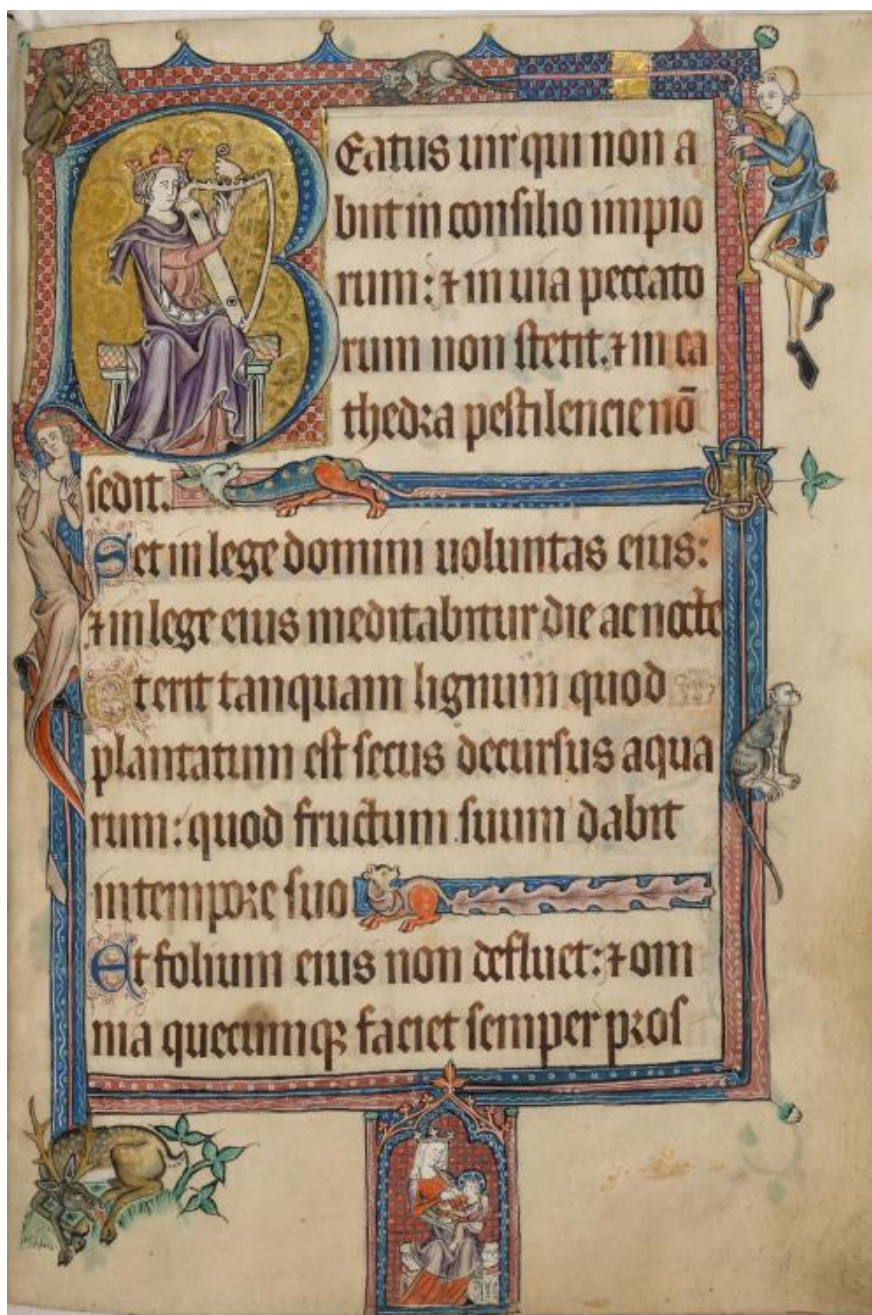 Beatus uir qui non a
biit in consilio impio
rum: ⁊ in uia peccato
rum non stetit. ⁊ in ca
thedra pestilencie nō
sedit.
Set in lege domini uoluntas eius:
⁊ in lege eius meditabitur die ac nocte
Et erit tanquam lignum quod
plantatum est secus decursus aqua
rum: quod fructum suum dabit
in tempore suo
Et folium eius non defluet: ⁊ om
nia quecumqꝫ faciet semper pros